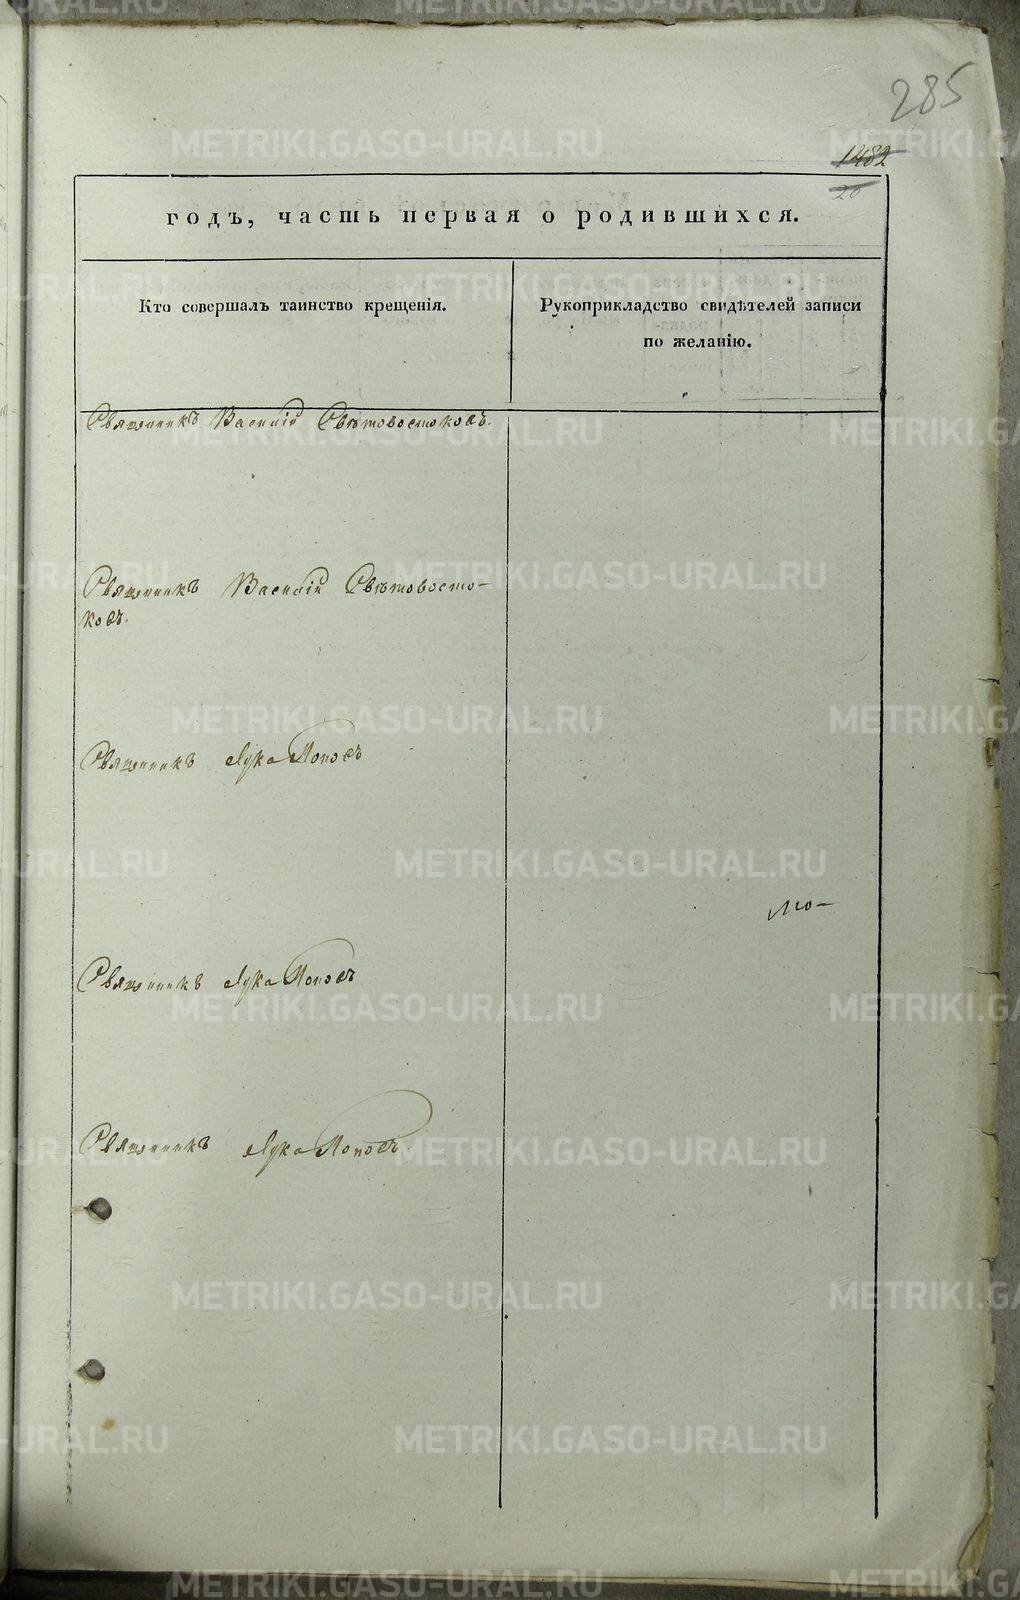 285
1482
20
годъ, часть первая о родившихся.
Кто совершалъ таинство крещенія.
Рукоприкладство свидѣтелей записи
по желанію.
Священникъ Василій Свѣтовостоковъ.
Священникъ Василій Свѣтовосто-
ковъ.
Священникъ Лука Поповъ
мо-
Священникъ Лука Поповъ
Священникъ Лука Поповъ
METRIKI.GASO-URAL.RU